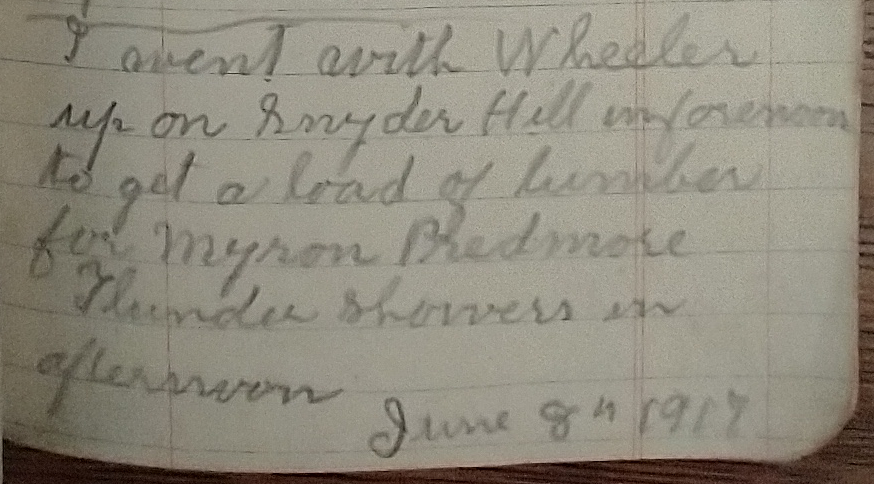 I went with Wheeler
up on Snyder Hill in forenoon
to get a load of lumber
for Myron Predmore
Thunder showers in
afternoon
June 8th 1917